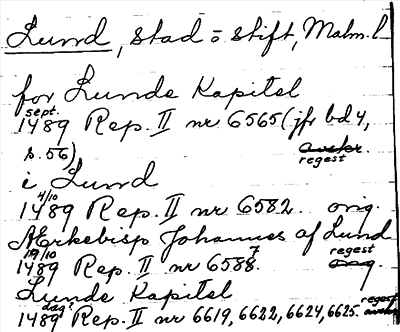 Lund, stad o stift, Malm. l.
for Lunde Kapitel
sept.
1489 Rep. II nr 6565 (jfr bd 4,
s. 56) regest
i Lund
4/10
1489 Rep. II nr 6582. orig.
Ærkebisp Johannes af Lund
19/10
1489 Rep. II nr 6587. regest
Lunde Kapitel
dag?
1489 Rep. II nr 6619, 6622, 6624, 6625. regest